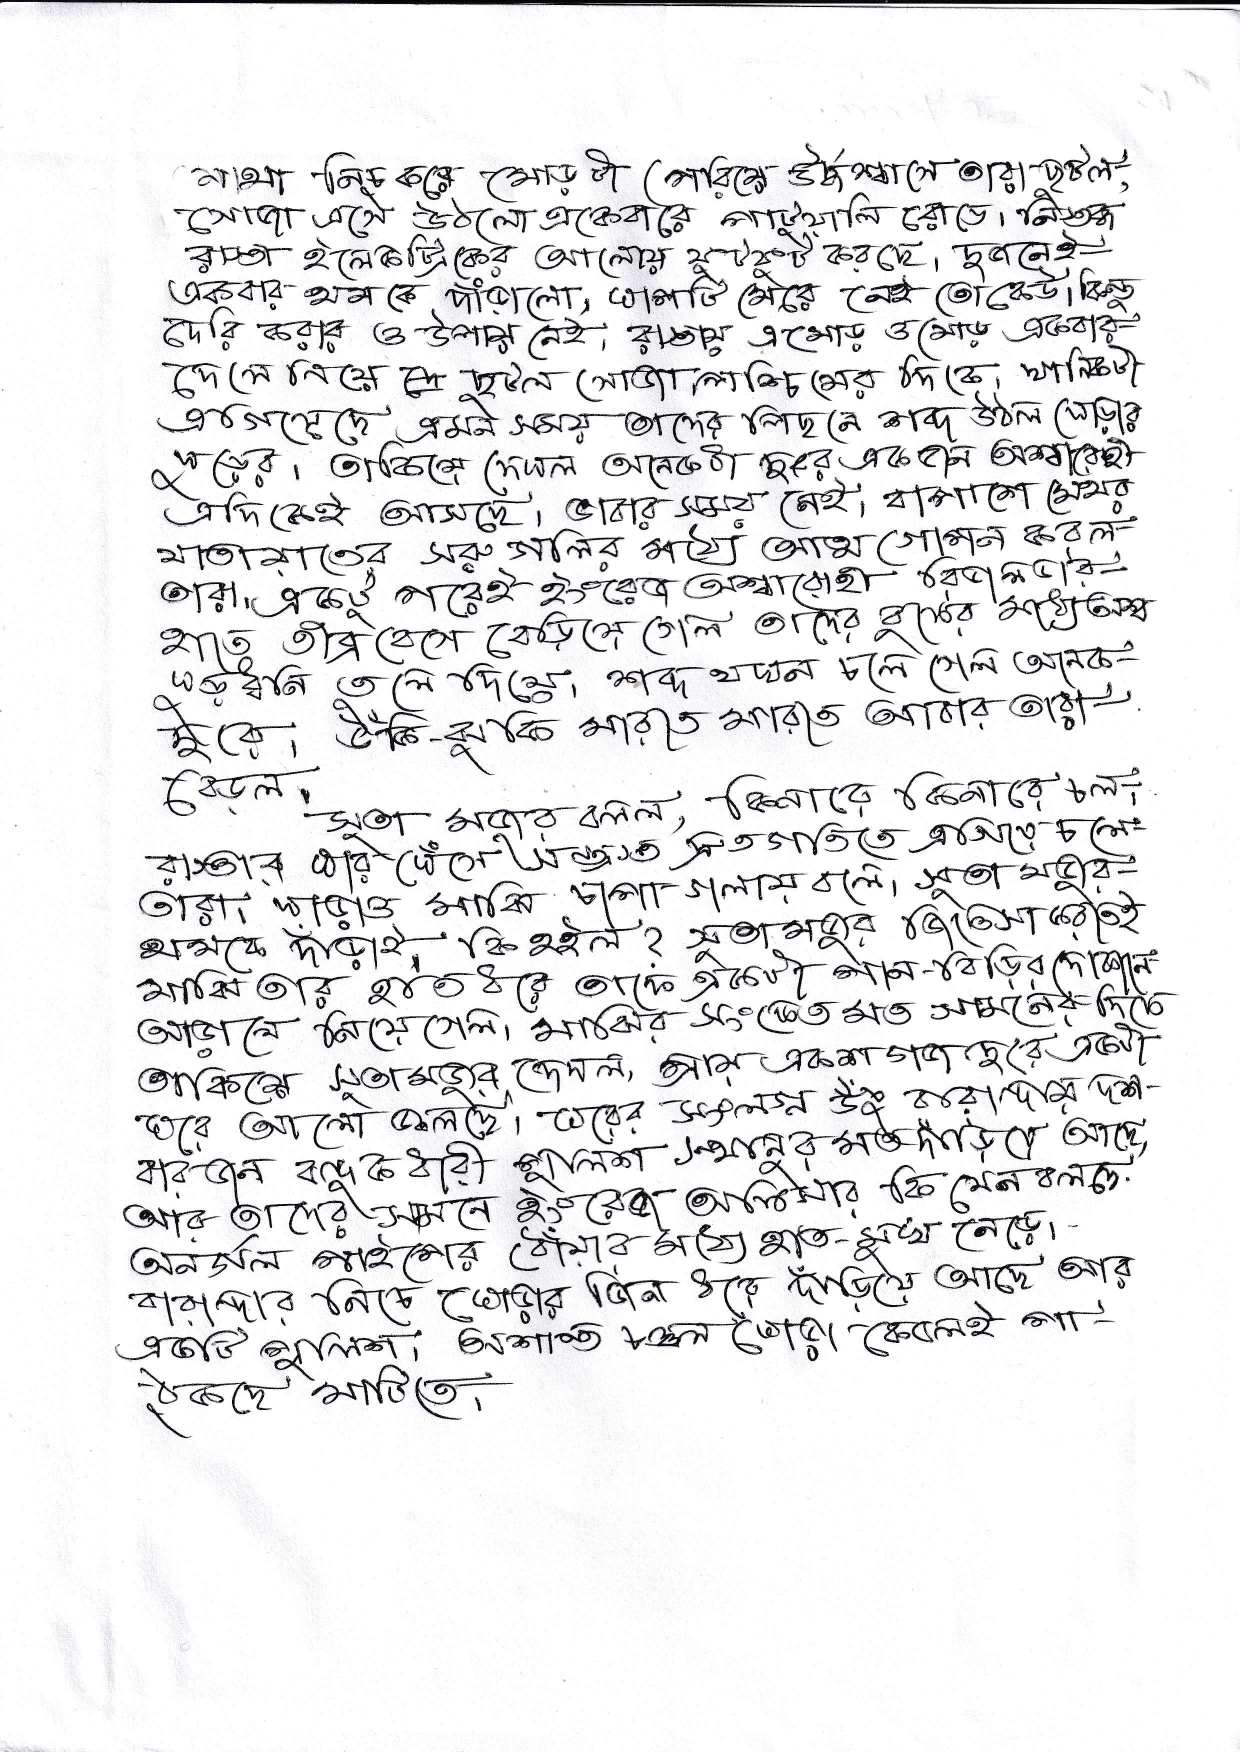 মাথা নিচু করে মোড়টা পেরিয়ে উর্দ্ধশ্বাসে তারা ছুটল,
সোজা এসে উঠলো একেবারে পাটুয়ালি রোডে। নিস্তব্ধ
রাস্তা ইলেকট্রিকের আলোয় ফুটফুট করছে, দুজনেই
একবার থমকে দাঁড়ালো, ঘাপটি মেরে নেই তো কেউ। কিন্তু
দেরি করার ও উপায় নেই, রাস্তায় এমোড় ওমোড় একবার
দেখে নিয়ে ছুটল সোজা পশ্চিমের দিকে। খানিকটা
এগিয়েছে এমন সময় তাদের পিছনে শব্দ উঠল ঘোড়ার
খুড়ের। তাকিয়ে দেখল অনেকটা দূরে একজন অশ্বারোহী
এদিকেই আসছে। ভাবার সময় নেই। বাপাশে মেথর
যাতায়াতের সরু গলির মধ্যে আত্মগোপন করল
তারা। একটু পরেই ইংরেজ অশ্বারোহী রিভালভার
হাতে তীব্র বেগে বেড়িয়ে গেল তাদের বুকের মধ্যে অশ্ব
খুড়ধ্বনি তুলে দিয়ে। শব্দ যখন চলে গেল অনেক
দূরে, উঁকি-ঝুকি মারতে মারতে আবার তারা
বেড়ল।
সুতা মজুর বলল, কিনারে কিনারে চল।
রাস্তার ধার ঘেঁসে সন্ত্রস্ত দ্রুতগতিতে এগিয়ে চলে
তারা। খাড়াও মাঝি চাপা গলায় বলে। সুতা মজুর
থমকে দাঁড়াই, কি হইল? সুতা মজুর জিতেসা করতেই
মাঝি তার হাত ধরে তাকে একটা পান-বিড়ির দোকানে
আড়ালে নিয়ে গেল। মাঝির সংকেত মত সামনের দিকে
তাকিয়ে সুতা মজুর দেখল, প্রায় একশ গজ দূরে একটা
ঘরে আলো জ্বলছে। ঘরের সংলগ্ন উঁচু বারান্দায় দশ-
বারজন বন্দুকধারী পুলিশ স্থানুর মত দাঁড়িয়ে আছে,
আর তাদের সামনে ইংরেজ অফিসার কি যেন বলছে
অনর্গল পাইপের ধোঁয়ার মধ্যে হাত-মুখ নেড়ে।
বারান্দার নিচে ঘোড়ার জিন ধরে দাঁড়িয়ে আছে আর
একটি পুলিশ। অশান্ত চঞ্চল ঘোড়া কেবলই পা
ঠুকছে মাটিতে।